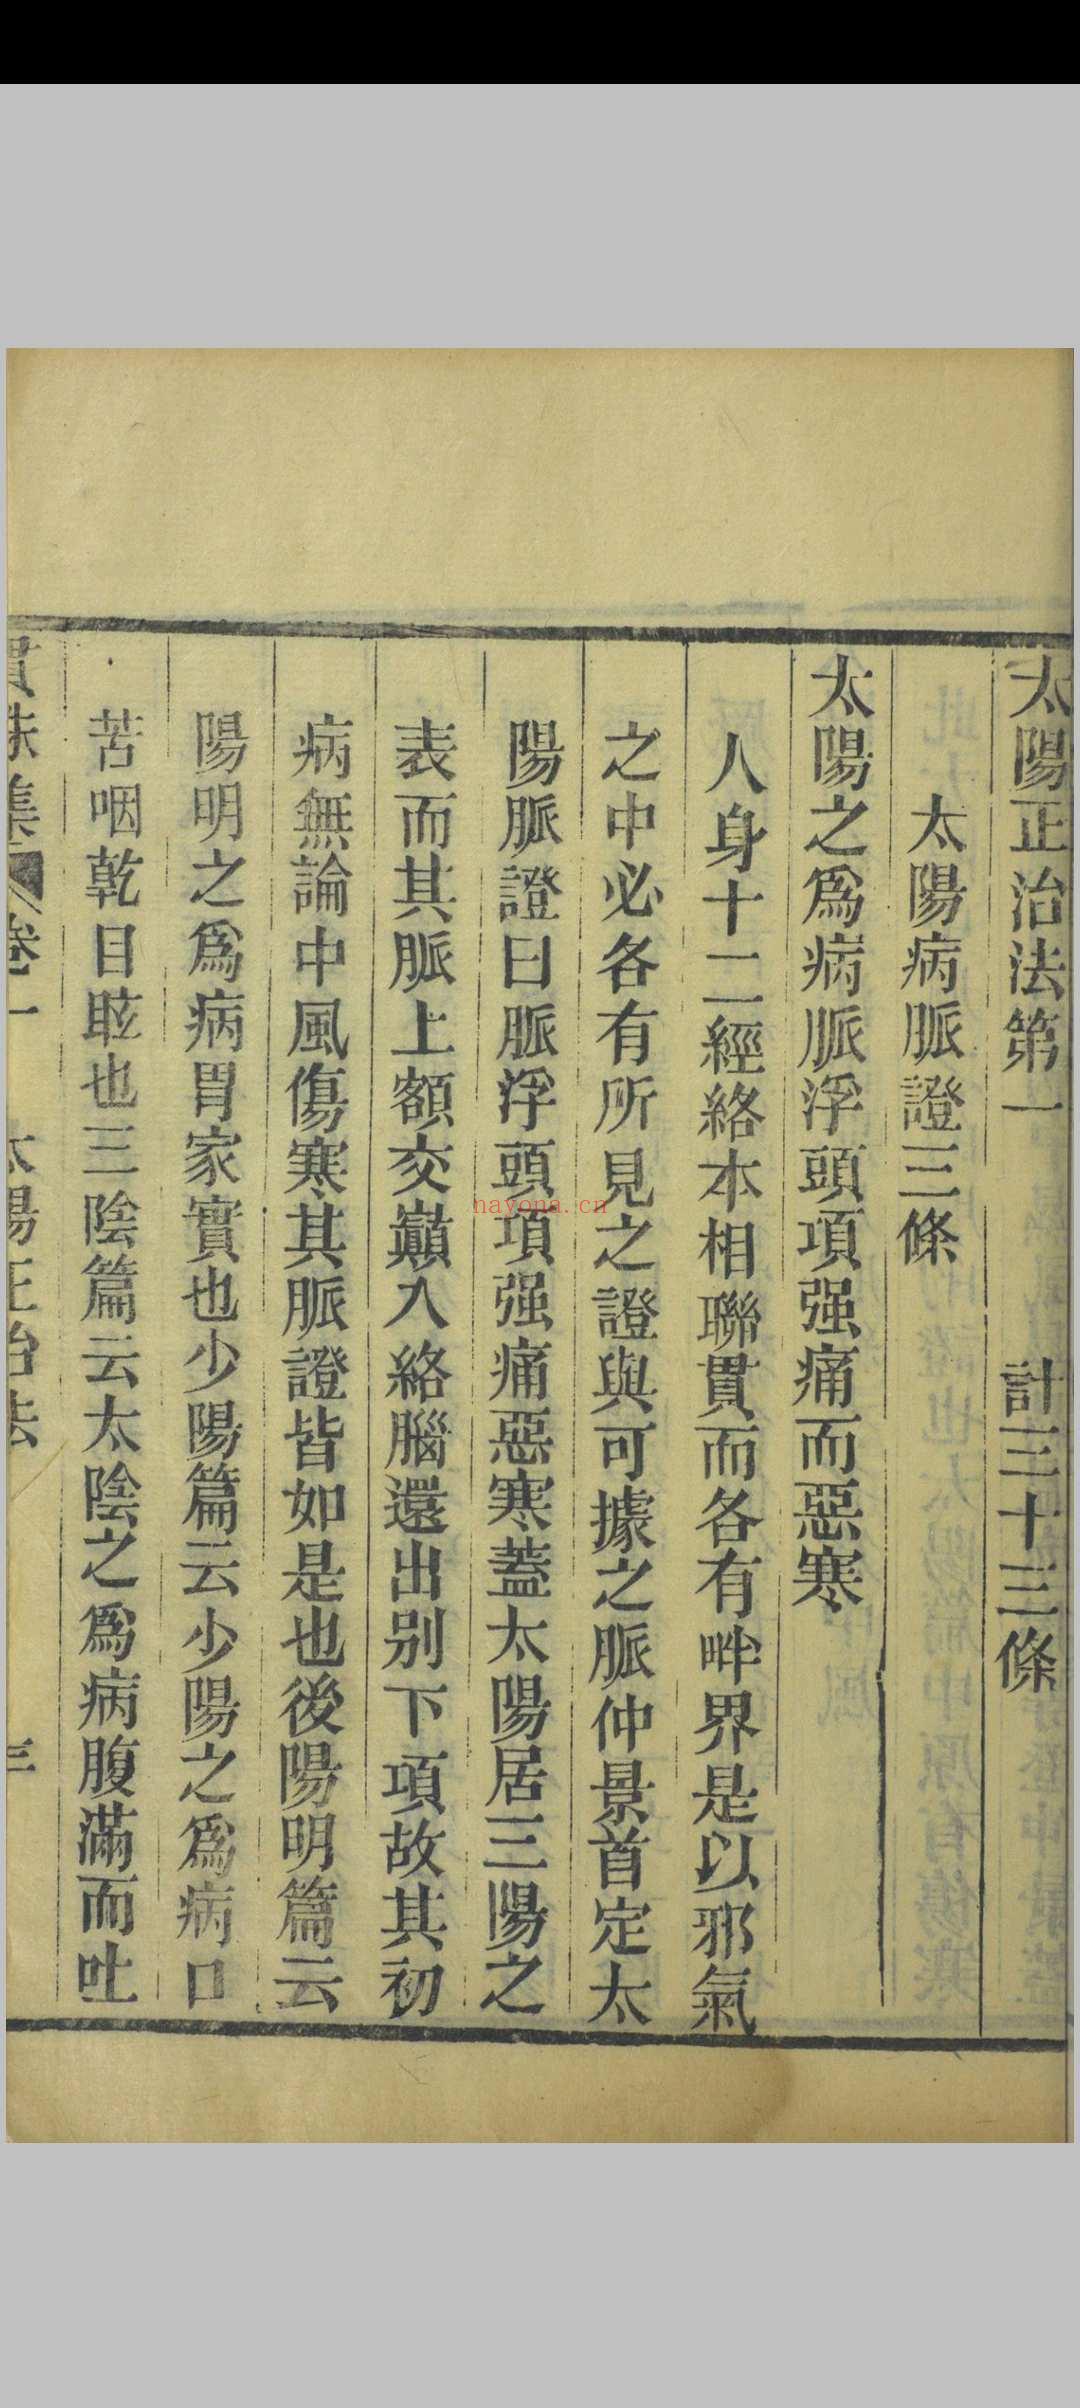 太陽正治法第一　計三十三條
太陽病脈證三條
太陽之爲病脈浮頭項强痛而惡寒
人身十二經絡本相聯貫而各有畔界是以邪氣
之中必各有所見之證與可據之脈仲景首定太
陽脈證曰脈浮頭項强痛惡寒蓋太陽居三陽之
表而其脈上額交巔入絡腦還出别下項故其初
病無論中風傷寒其脈證皆如是也後陽明篇云
陽明之爲病胃家實也少陽篇云少陽之爲病口
苦咽乾目眩也三陰篇云太陰之爲病腹滿而吐
貫珠集　卷一　太陽正治法　三
nayona.cn